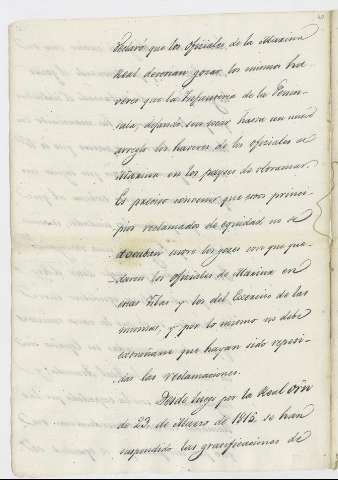 claró que los oficiales de la Marina
Real devorian gozar los mismos ha-
veres que la Infanteria de la Penin-
sula, dejando sin hasta un nuevo
arreglo los haveres de los oficiales de
Marina en los payses de ultramar.
Es preciso convenir que estos princi-
pios reclamados de equidad no se
los goces con que que-
daron los oficiales de Marina en
estas Yslas y los del Exercito de las
mismas, y por lo mismo no debe
estrañarse que hayan sido repeti-
das las reclamaciones.
Desde luego por la Real Orn
de 22 de Marzo de 1816 se han
suspendido las gratificaciones de